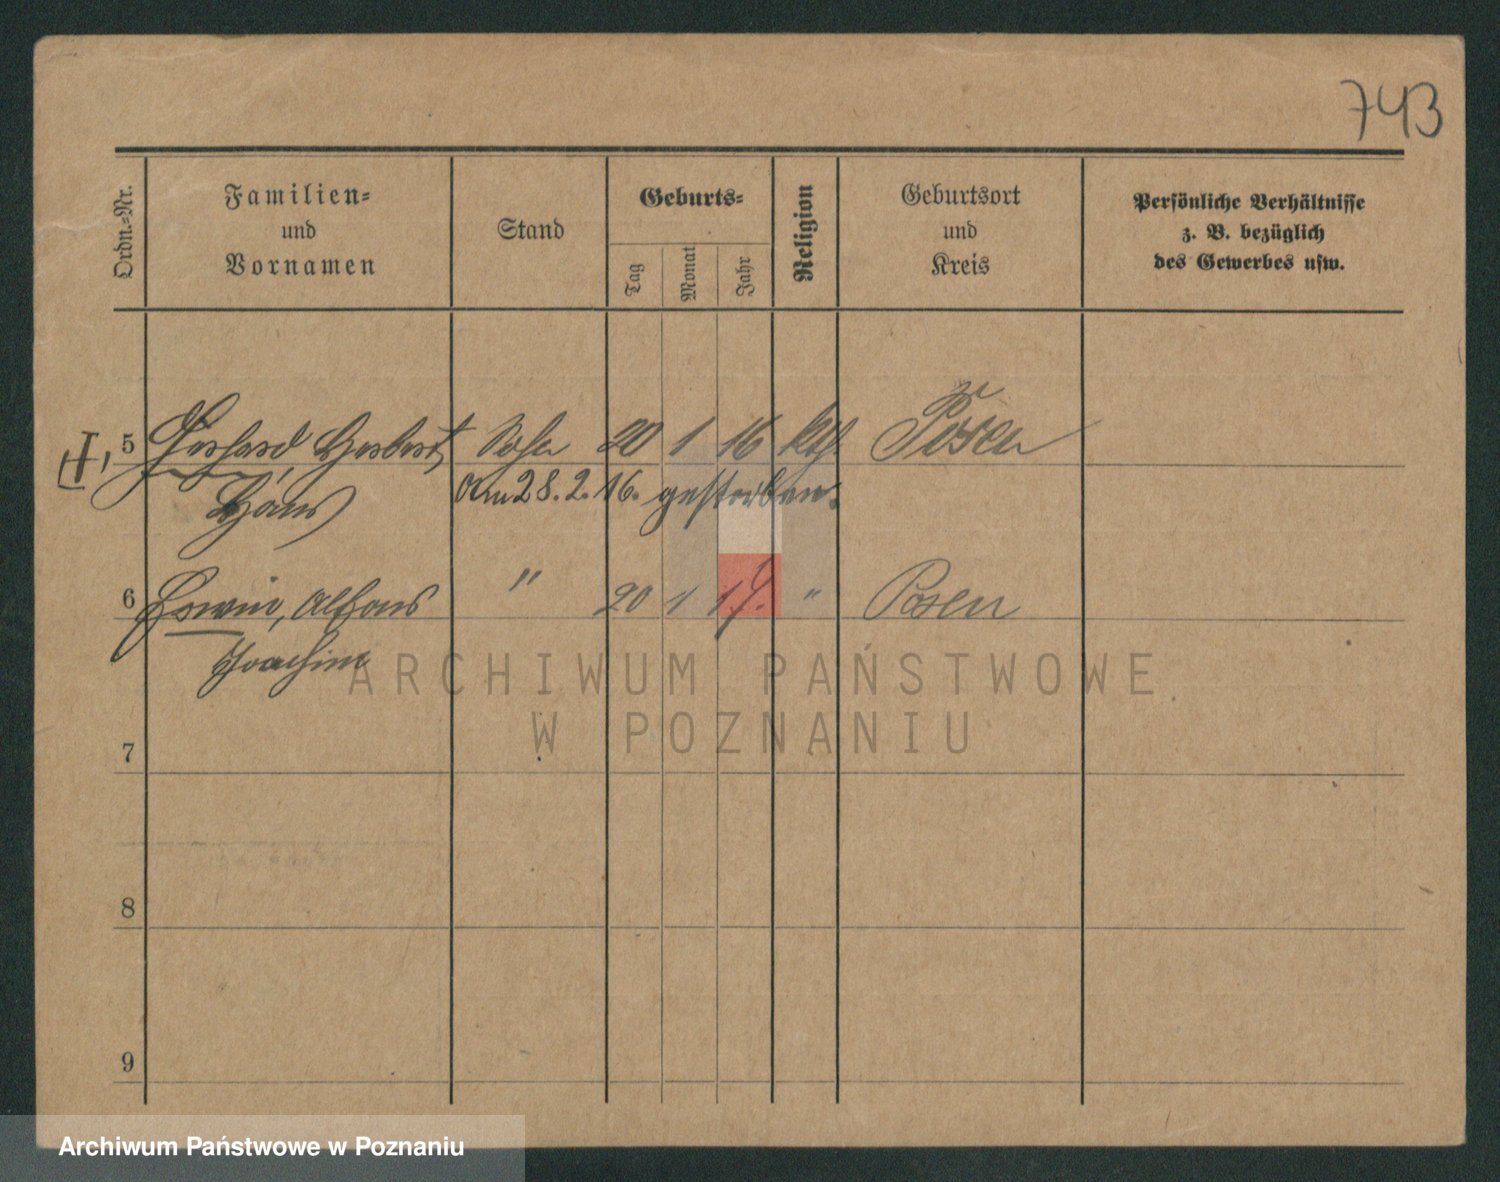 743
Ordn.-Nr.
Familien-
und
Vornamen
Stand
Geburts-
Tag
Monat
Jahr
Religion
Geburtsort
und
Kreis
Persönliche Verhältnisse
z. B. bezüglich
des Gewerbes usw.
5 Gerhard Herbert Sohn 20 1 16 kth. Posen
Hans
Am 28.2.16. gestorben.
6 Erwin, Alfons " 20 1 17. " Posen
Joachim
7
8
9
ARCHIWUM PAŃSTWOWE
W POZNANIU
Archiwum Państwowe w Poznaniu